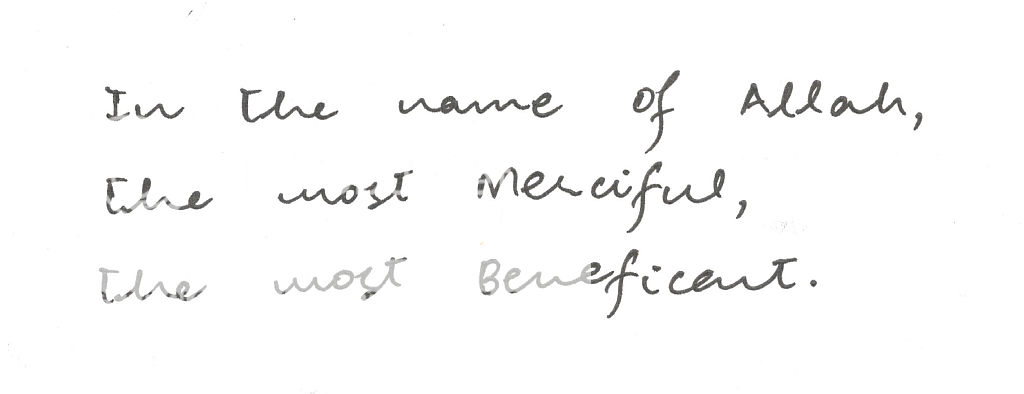 In the name of Allah,
the most Merciful,
the most Beneficent.